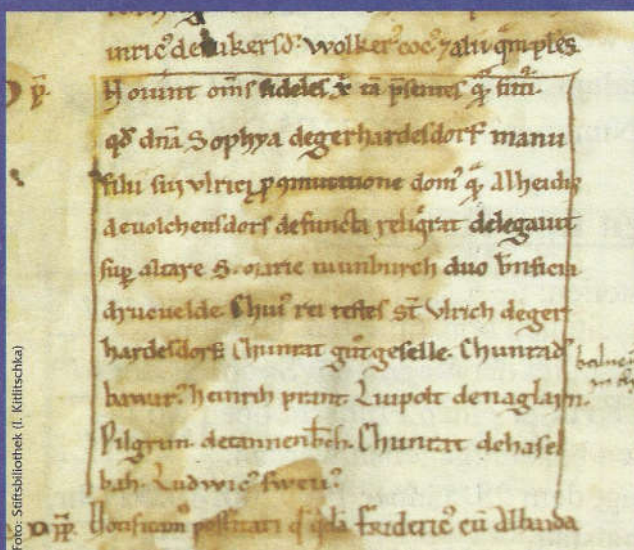 inric᷒ de wikersd᷒. wolker᷒ coc᷒ ⁊ alii q̃mples
Nouint om̄s fideles x̄ tā p̄sentes q̄ futi.
qd̄ dn̄a Sophya degerhardesdorf manu
filii sui vlrici ꝑ 9mutatione dom᷒ q̄ Alheidis
de volchensdorf defuncta reliq̄rat delegauit
sup̄ altare S. marie niunburch duo b̄nficia
Chui᷒ rei testes st̄ vlrich deger
hardesdorf Chunrat gůtgeselle. Chunrad᷒
bawar᷒. heinrih prant. Liupolt denaglarn.
Pilgrim detannenb̄ch. Chunrat dehasel
bah. Ludwic᷒ sweu᷒.
Frideric᷒ cū
Foto: Stiftsbibliothek (I. Kitlitschka)